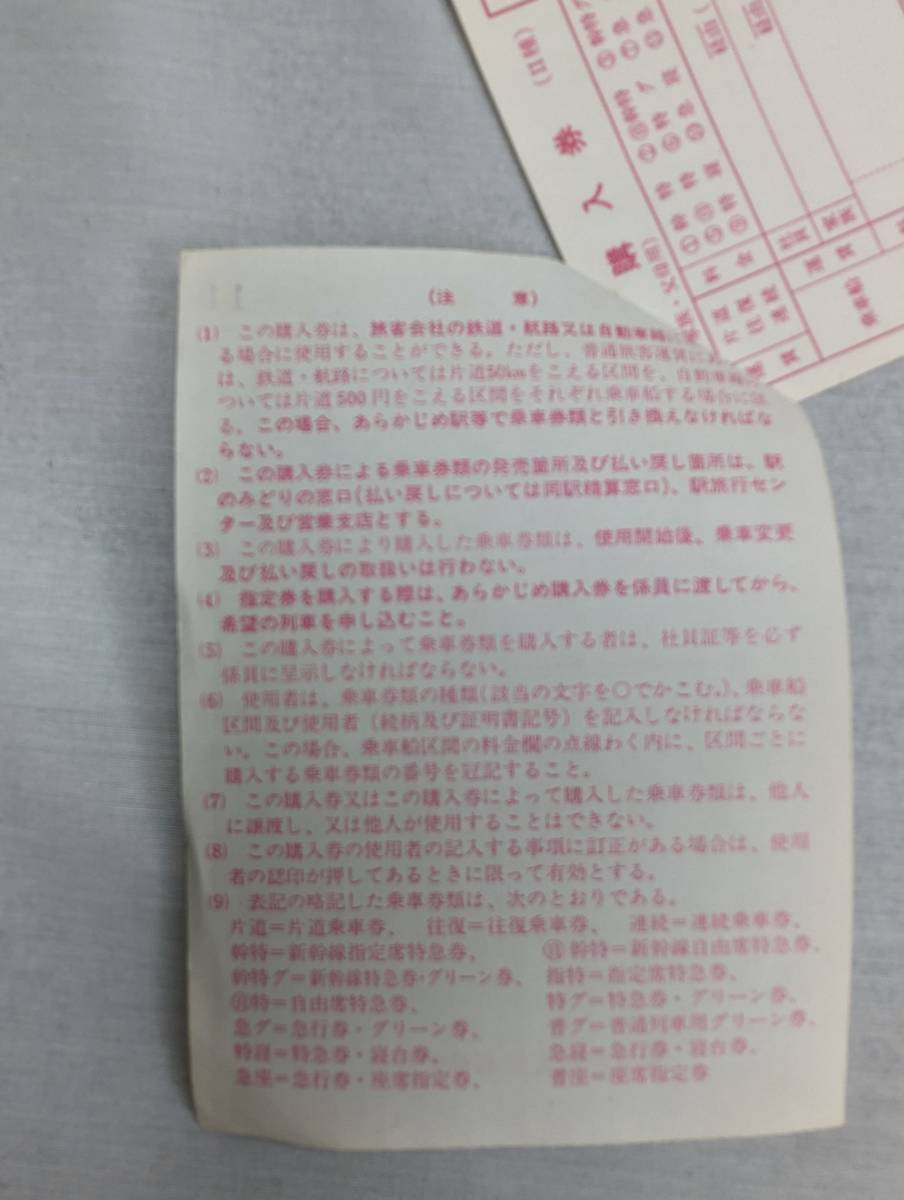 (注　意)
(1) この購入券は、旅客会社の鉄道・航路又は自動車線に
る場合に使用することができる。ただし、普通旅客運賃に
は、鉄道・航路については片道50kmをこえる区間を、自動車線に
ついては片道500円をこえる区間をそれぞれ乗車船する場合に限
る。この場合、あらかじめ駅等で乗車券類と引き換えなければな
らない。
(2) この購入券による乗車券類の発売箇所及び払い戻し箇所は、駅
のみどりの窓口(払い戻しについては同駅精算窓口)、駅旅行セン
ター及び営業支店とする。
(3) この購入券により購入した乗車券類は、使用開始後、乗車変更
及び払い戻しの取扱いは行わない。
(4) 指定券を購入する際は、あらかじめ購入券を係員に渡してから、
希望の列車を申し込むこと。
(5) この購入券によって乗車券類を購入する者は、社員証等を必ず
係員に呈示しなければならない。
(6) 使用者は、乗車券類の種類(該当の文字を○でかこむ。)、乗車船
区間及び使用者（続柄及び証明書記号）を記入しなければならな
い。この場合、乗車船区間の料金欄の点線わく内に、区間ごとに
購入する乗車券類の番号を冠記すること。
(7) この購入券又はこの購入券によって購入した乗車券類は、他人
に譲渡し、又は他人が使用することはできない。
(8) この購入券の使用者の記入する事項に訂正がある場合は、使用
者の認印が押してあるときに限って有効とする。
(9) 表記の略記した乗車券類は、次のとおりである。
片道＝片道乗車券、　往復＝往復乗車券、　連続＝連続乗車券、
幹特＝新幹線指定席特急券、　㊐幹特＝新幹線自由席特急券、
幹特グ＝新幹線特急券・グリーン券、　指特＝指定席特急券、
㊐特＝自由席特急券、　特グ＝特急券・グリーン券、
急グ＝急行券・グリーン券、　普グ＝普通列車用グリーン券、
特寝＝特急券・寝台券、　急寝＝急行券・寝台券、
急座＝急行券・座席指定券、　普座＝座席指定券
購入券